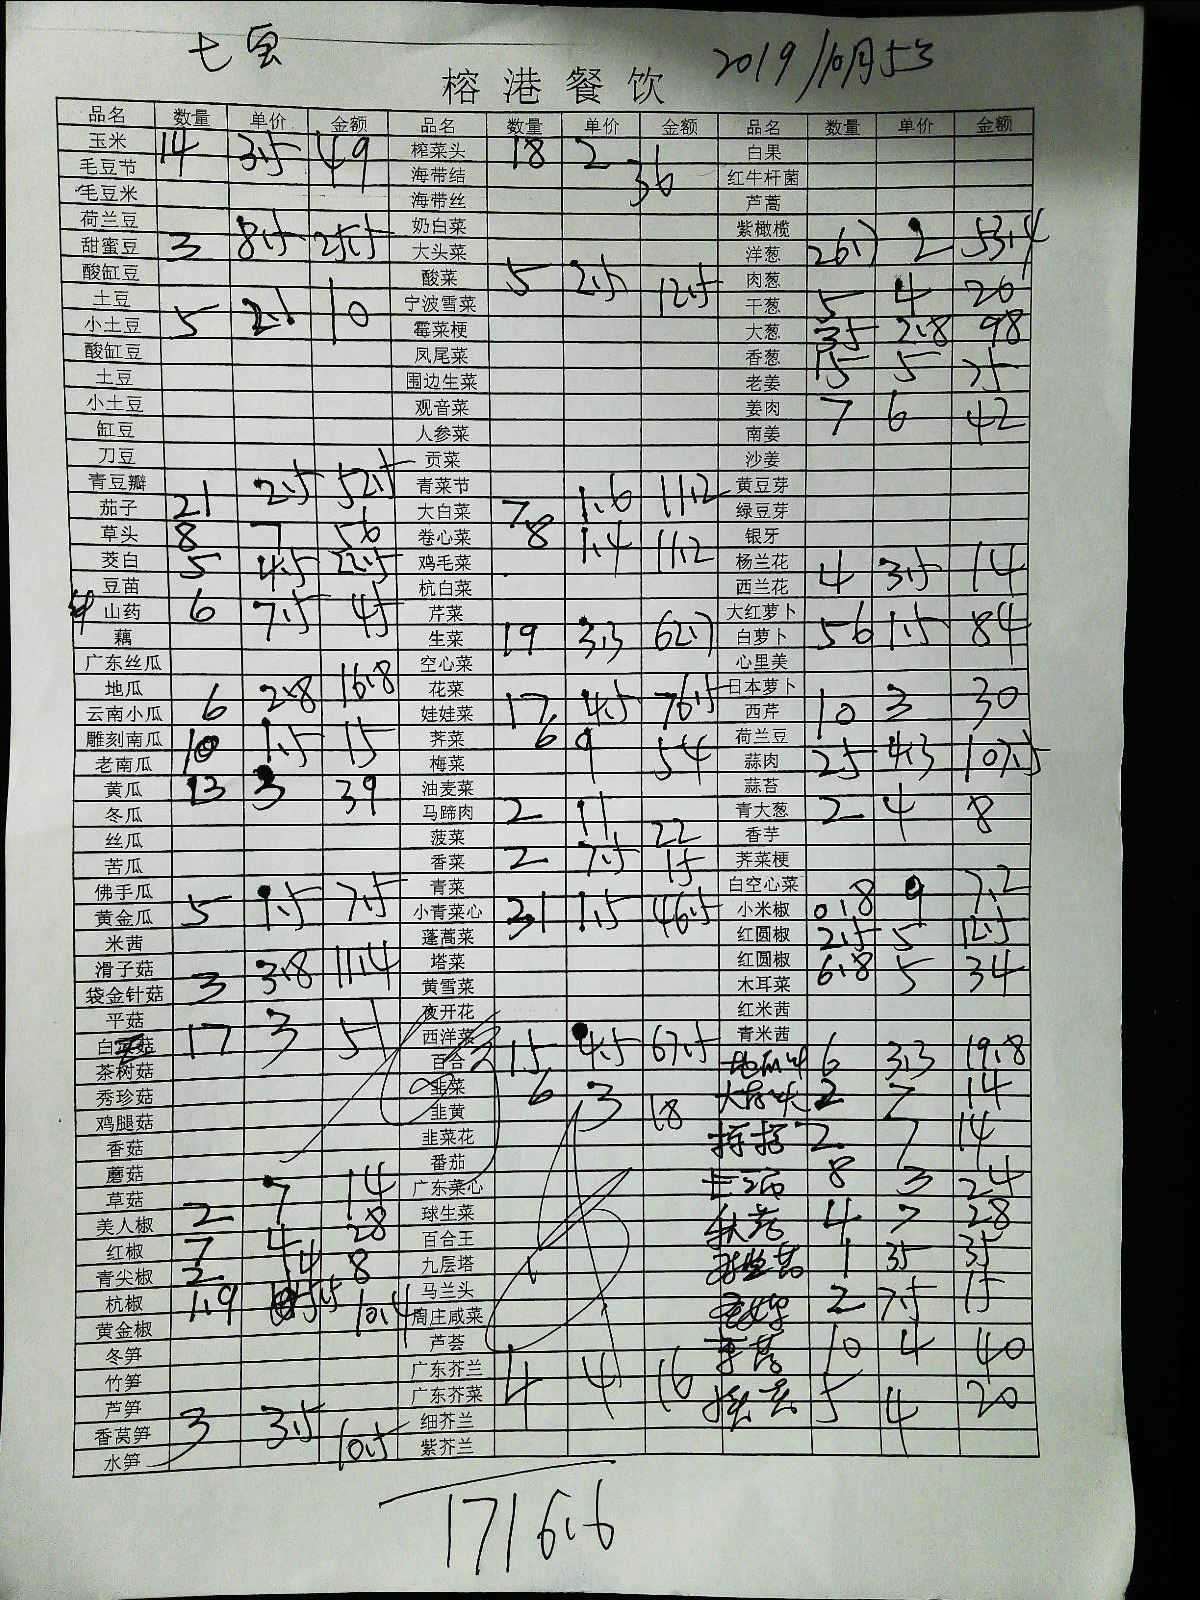 七宝 2019/10月5号
榕港餐饮
品名 数量 单价 金额 品名 数量 单价 金额 品名 数量 单价 金额
玉米 14 3.5 49 榨菜头 18 2 36 白果
毛豆节 海带结 红牛杆菌
毛豆米 海带丝 芦蒿
荷兰豆 奶白菜 紫橄榄
甜蜜豆 3 8.5 25.5 大头菜 洋葱 26.7 2 53.4
酸缸豆 酸菜 5 2.5 12.5 肉葱
土豆 宁波雪菜 干葱 5 4 20
小土豆 5 2. 10 霉菜梗 大葱 35 2.8 98
酸缸豆 凤尾菜 香葱 15 5 75
土豆 围边生菜 老姜
小土豆 观音菜 姜肉 7 6 42
缸豆 人参菜 南姜
刀豆 贡菜 沙姜
青豆瓣 青菜节 黄豆芽
茄子 21 2.5 52.5 大白菜 7 1.6 11.2 绿豆芽
草头 8 7 56 卷心菜 8 1.4 11.2 银牙
茭白 5 4.5 22.5 鸡毛菜 杨兰花
豆苗 杭白菜 西兰花 4 3.5 14
山药 6 7.5 45 芹菜 大红萝卜
藕 生菜 19 3.3 62.7 白萝卜 56 1.5 84
广东丝瓜 空心菜 心里美
地瓜 花菜 日本萝卜
云南小瓜 6 2.8 16.8 娃娃菜 17 4.5 76.5 西芹 10 3 30
雕刻南瓜 荠菜 6 9 54 荷兰豆
老南瓜 10 1.5 15 梅菜 蒜肉 25 4.3 107.5
黄瓜 13 3 39 油麦菜 蒜苔
冬瓜 马蹄肉 2 11 22 青大葱 2 4 8
丝瓜 菠菜 香芋
苦瓜 香菜 2 7.5 15 荠菜梗
佛手瓜 青菜 白空心菜
黄金瓜 5 1.5 7.5 小青菜心 31 1.5 46.5 小米椒 0.8 9 7.2
米茜 蓬蒿菜 红圆椒 2.5 5 12.5
滑子菇 塔菜 红圆椒 6.8 5 34
袋金针菇 3 3.8 11.4 黄雪菜 木耳菜
平菇 夜开花 红米茜
白菇 17 3 51 西洋菜 青米茜
茶树菇 百合 15 4.5 67.5 6 3.3 19.8
秀珍菇 韭菜 6 3 18 2 7 14
鸡腿菇 韭黄 2 7 14
香菇 韭菜花
蘑菇 番茄 8 3 24
草菇 2 7 14 广东菜心
美人椒 球生菜 4 7 28
红椒 7 4 28 百合王
青尖椒 2 4 8 九层塔 1 35 35
杭椒 1.9 5.5 10.4 马兰头
黄金椒 周庄咸菜 2 7.5 15
冬笋 芦荟
竹笋 广东芥兰 4 4 16 10 4 40
芦笋 广东芥菜
香莴笋 3 3.5 10.5 细芥兰 5 4 20
水笋 紫芥兰
1716.6